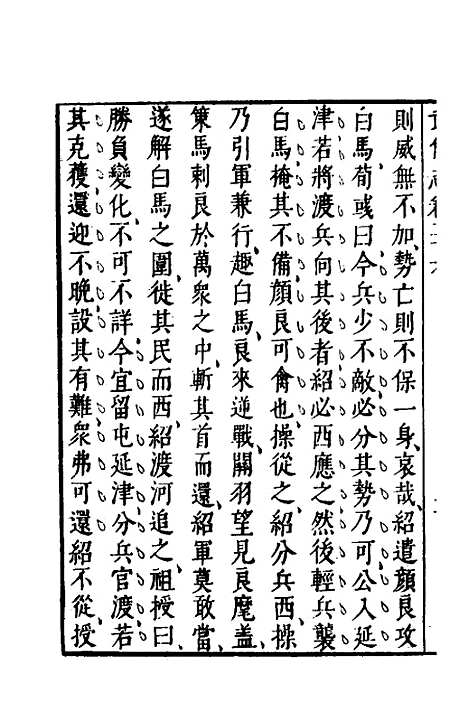 則威無不加、勢亡則不保一身、哀哉、紹遣顏良攻
白馬、荀彧曰今兵少不敵必分其勢乃可公入延
津若將渡兵向其後者紹必西應之然後輕兵襲
白馬掩其不備顏良可禽也、操從之、紹分兵西、操
乃引軍兼行、趣白馬、良來逆戰、關羽望見良麾盖、
策馬刺良於萬衆之中、斬其首而還、紹軍莫敢當、
遂解白馬之圍、徙其民而西、紹渡河追之、祖授曰、
勝負變化、不可不詳今宜留屯延津分兵官渡若
其克獲還迎不晚設其有難衆弗可還紹不從、授